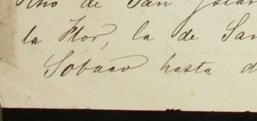 de San
la Flor, la de San
Sobaco hasta d